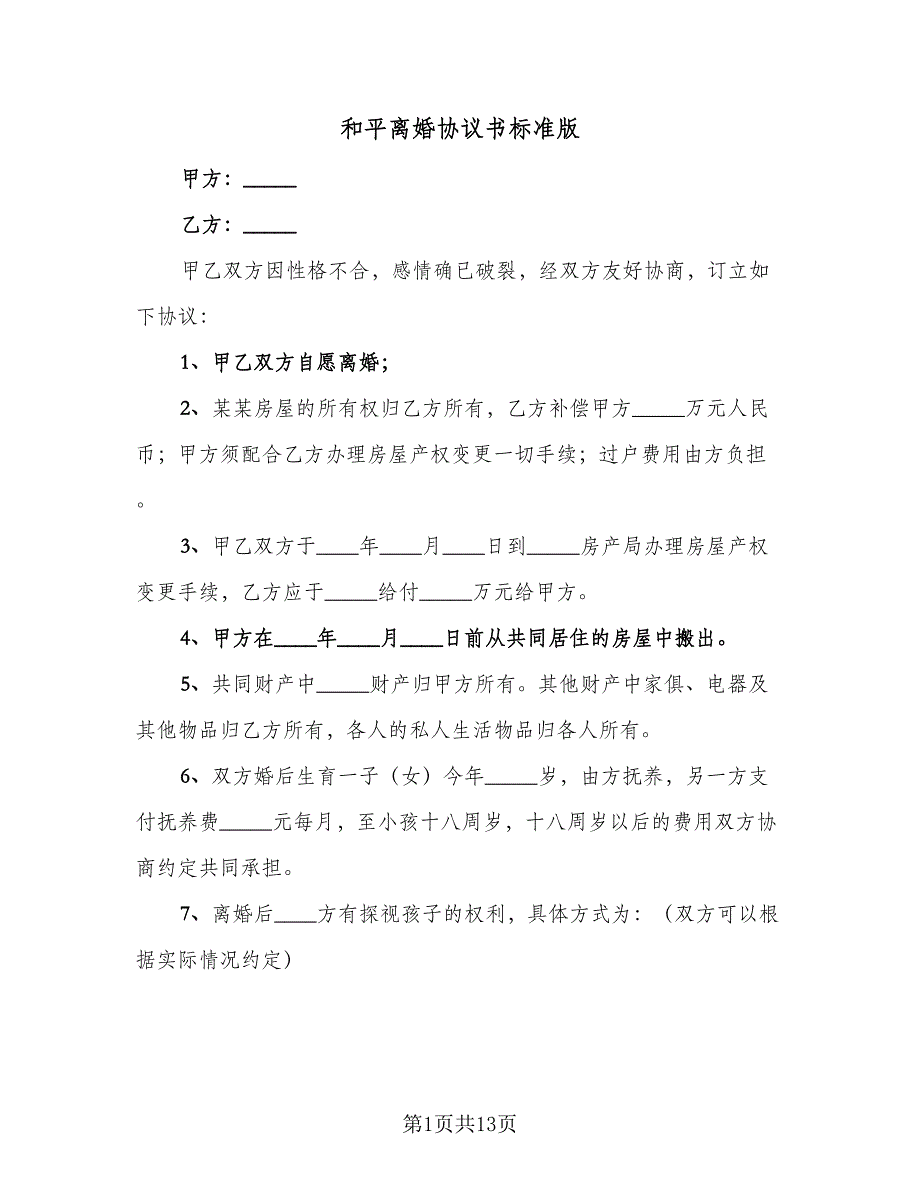 和平离婚协议书标准版
甲方：_____
乙方：_____
甲乙双方因性格不合，感情确已破裂，经双方友好协商，订立如
下协议：
1、甲乙双方自愿离婚；
2、某某房屋的所有权归乙方所有，乙方补偿甲方_____万元人民
币；甲方须配合乙方办理房屋产权变更一切手续；过户费用由方负担
。
3、甲乙双方于____年____月____日到_____房产局办理房屋产权
变更手续，乙方应于_____给付_____万元给甲方。
4、甲方在____年____月____日前从共同居住的房屋中搬出。
5、共同财产中_____财产归甲方所有。其他财产中家俱、电器及
其他物品归乙方所有，各人的私人生活物品归各人所有。
6、双方婚后生育一子（女）今年_____岁，由方抚养，另一方支
付抚养费_____元每月，至小孩十八周岁，十八周岁以后的费用双方协
商约定共同承担。
7、离婚后____方有探视孩子的权利，具体方式为：（双方可以根
据实际情况约定）
第1页共13页